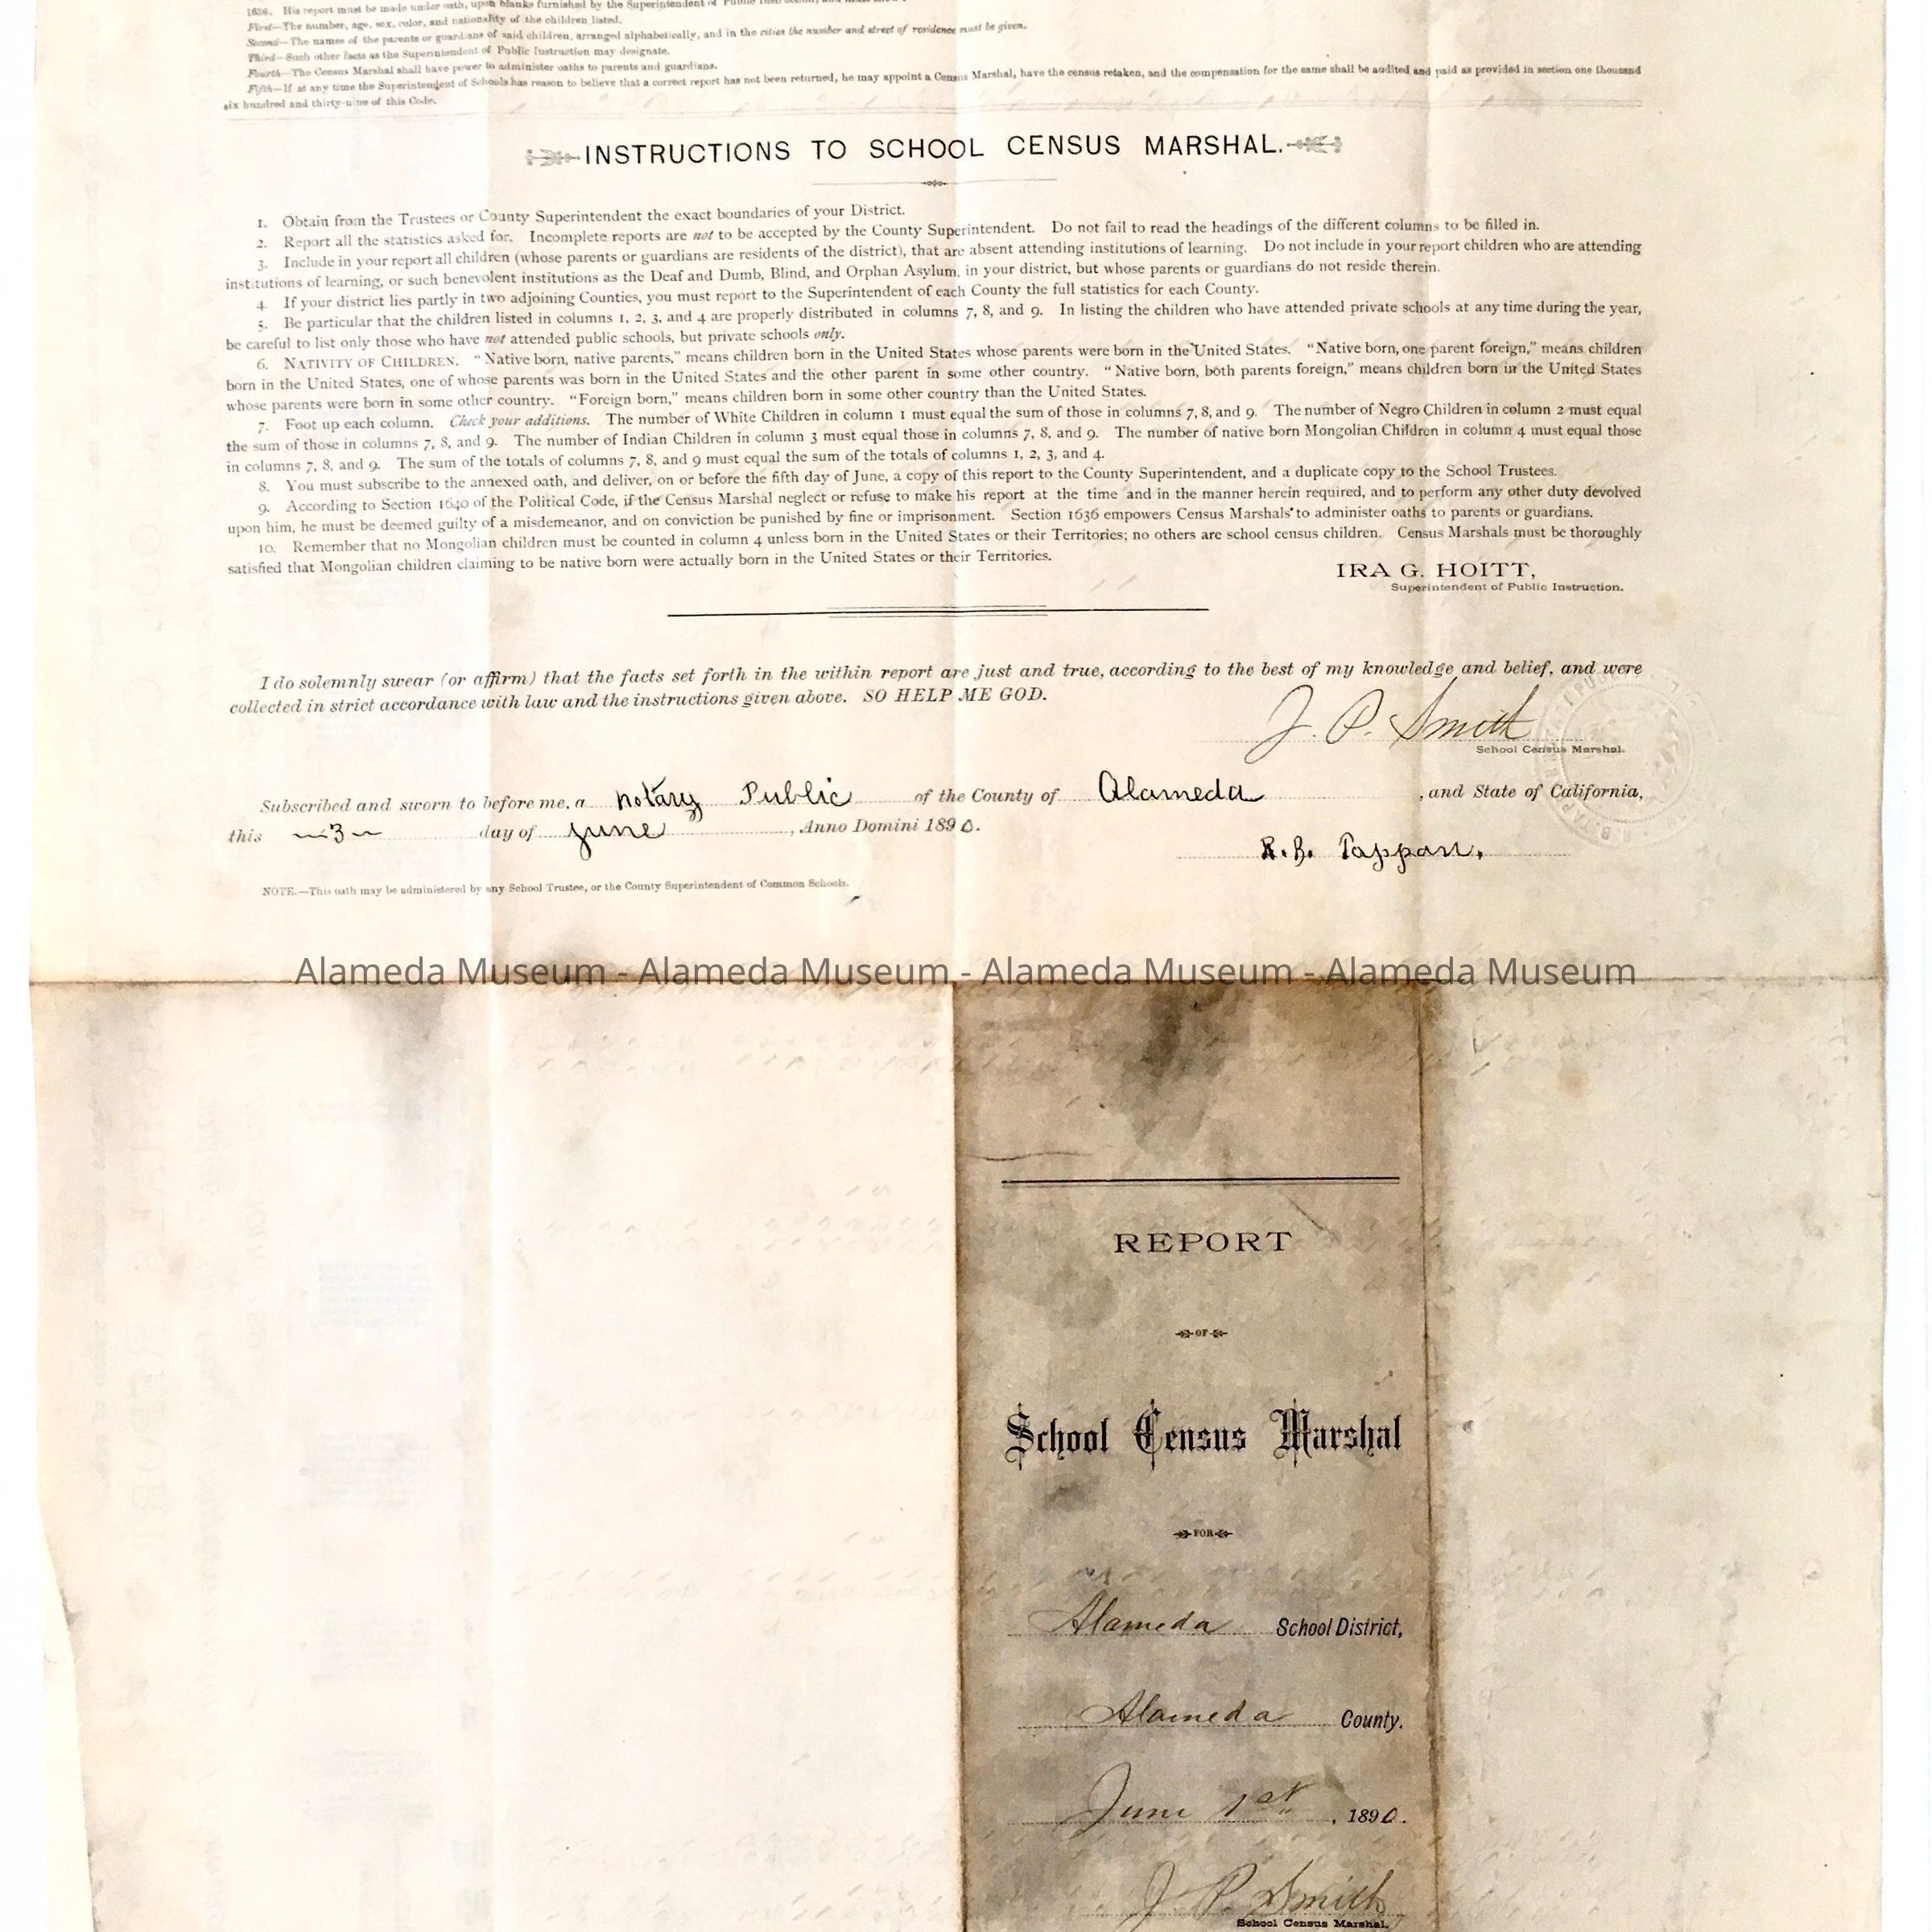 1636. His report must be made under oath, upon blanks furnished by the Superintendent of Public
First—The number, age, sex, color, and nationality of the children listed.
Second—The names of the parents or guardians of said children, arranged alphabetically, and in the cities the number and street of residence must be given.
Third—Such other facts as the Superintendent of Public Instruction may designate.
Fourth—The Census Marshal shall have power to administer oaths to parents and guardians.
Fifth—If at any time the Superintendent of Schools has reason to believe that a correct report has not been returned, he may appoint a Census Marshal, have the census retaken, and the compensation for the same shall be audited and paid as provided in section one thousand
six hundred and thirty-nine of this Code.
INSTRUCTIONS TO SCHOOL CENSUS MARSHAL.
1. Obtain from the Trustees or County Superintendent the exact boundaries of your District.
2. Report all the statistics asked for. Incomplete reports are not to be accepted by the County Superintendent. Do not fail to read the headings of the different columns to be filled in.
3. Include in your report all children (whose parents or guardians are residents of the district), that are absent attending institutions of learning. Do not include in your report children who are attending
institutions of learning, or such benevolent institutions as the Deaf and Dumb, Blind, and Orphan Asylum, in your district, but whose parents or guardians do not reside therein.
4. If your district lies partly in two adjoining Counties, you must report to the Superintendent of each County the full statistics for each County.
5. Be particular that the children listed in columns 1, 2, 3, and 4 are properly distributed in columns 7, 8, and 9. In listing the children who have attended private schools at any time during the year,
be careful to list only those who have not attended public schools, but private schools only.
6. NATIVITY OF CHILDREN. "Native born, native parents," means children born in the United States whose parents were born in the United States. "Native born, one parent foreign," means children
born in the United States, one of whose parents was born in the United States and the other parent in some other country. "Native born, both parents foreign," means children born in the United States
whose parents were born in some other country. "Foreign born," means children born in some other country than the United States.
7. Foot up each column. Check your additions. The number of White Children in column 1 must equal the sum of those in columns 7, 8, and 9. The number of Negro Children in column 2 must equal
the sum of those in columns 7, 8, and 9. The number of Indian Children in column 3 must equal those in columns 7, 8, and 9. The number of native born Mongolian Children in column 4 must equal those
in columns 7, 8, and 9. The sum of the totals of columns 7, 8, and 9 must equal the sum of the totals of columns 1, 2, 3, and 4.
8. You must subscribe to the annexed oath, and deliver, on or before the fifth day of June, a copy of this report to the County Superintendent, and a duplicate copy to the School Trustees.
9. According to Section 1640 of the Political Code, if the Census Marshal neglect or refuse to make his report at the time and in the manner herein required, and to perform any other duty devolved
upon him, he must be deemed guilty of a misdemeanor, and on conviction be punished by fine or imprisonment. Section 1636 empowers Census Marshals to administer oaths to parents or guardians.
10. Remember that no Mongolian children must be counted in column 4 unless born in the United States or their Territories; no others are school census children. Census Marshals must be thoroughly
satisfied that Mongolian children claiming to be native born were actually born in the United States or their Territories.
IRA G. HOITT,
Superintendent of Public Instruction.
I do solemnly swear (or affirm) that the facts set forth in the within report are just and true, according to the best of my knowledge and belief, and were
collected in strict accordance with law and the instructions given above. SO HELP ME GOD.
J. P. Smith
School Census Marshal.
Subscribed and sworn to before me, a notary Public of the County of Alameda, and State of California,
this 3 day of June, Anno Domini 1890.
R. B. Tappan.
NOTE.—This oath may be administered by any School Trustee, or the County Superintendent of Common Schools.
Alameda Museum - Alameda Museum - Alameda Museum - Alameda Museum
REPORT
OF
School Census Marshal
FOR
Alameda School District,
Alameda County.
June 1st, 1890.
J. P. Smith
School Census Marshal.